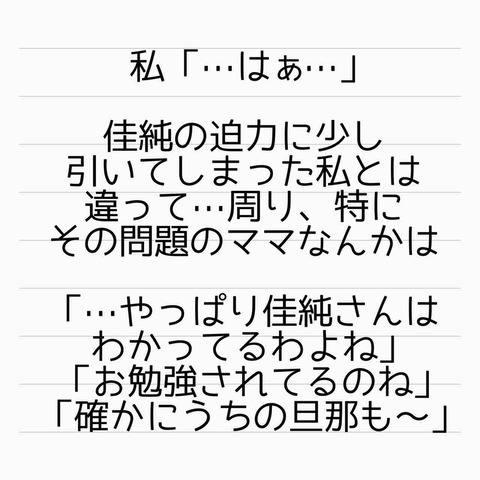 私「…はぁ…」
佳純の迫力に少し
引いてしまった私とは
違って…周り、特に
その問題のママなんかは
「…やっぱり佳純さんは
わかってるわよね」
「お勉強されてるのね」
「確かにうちの旦那も〜」